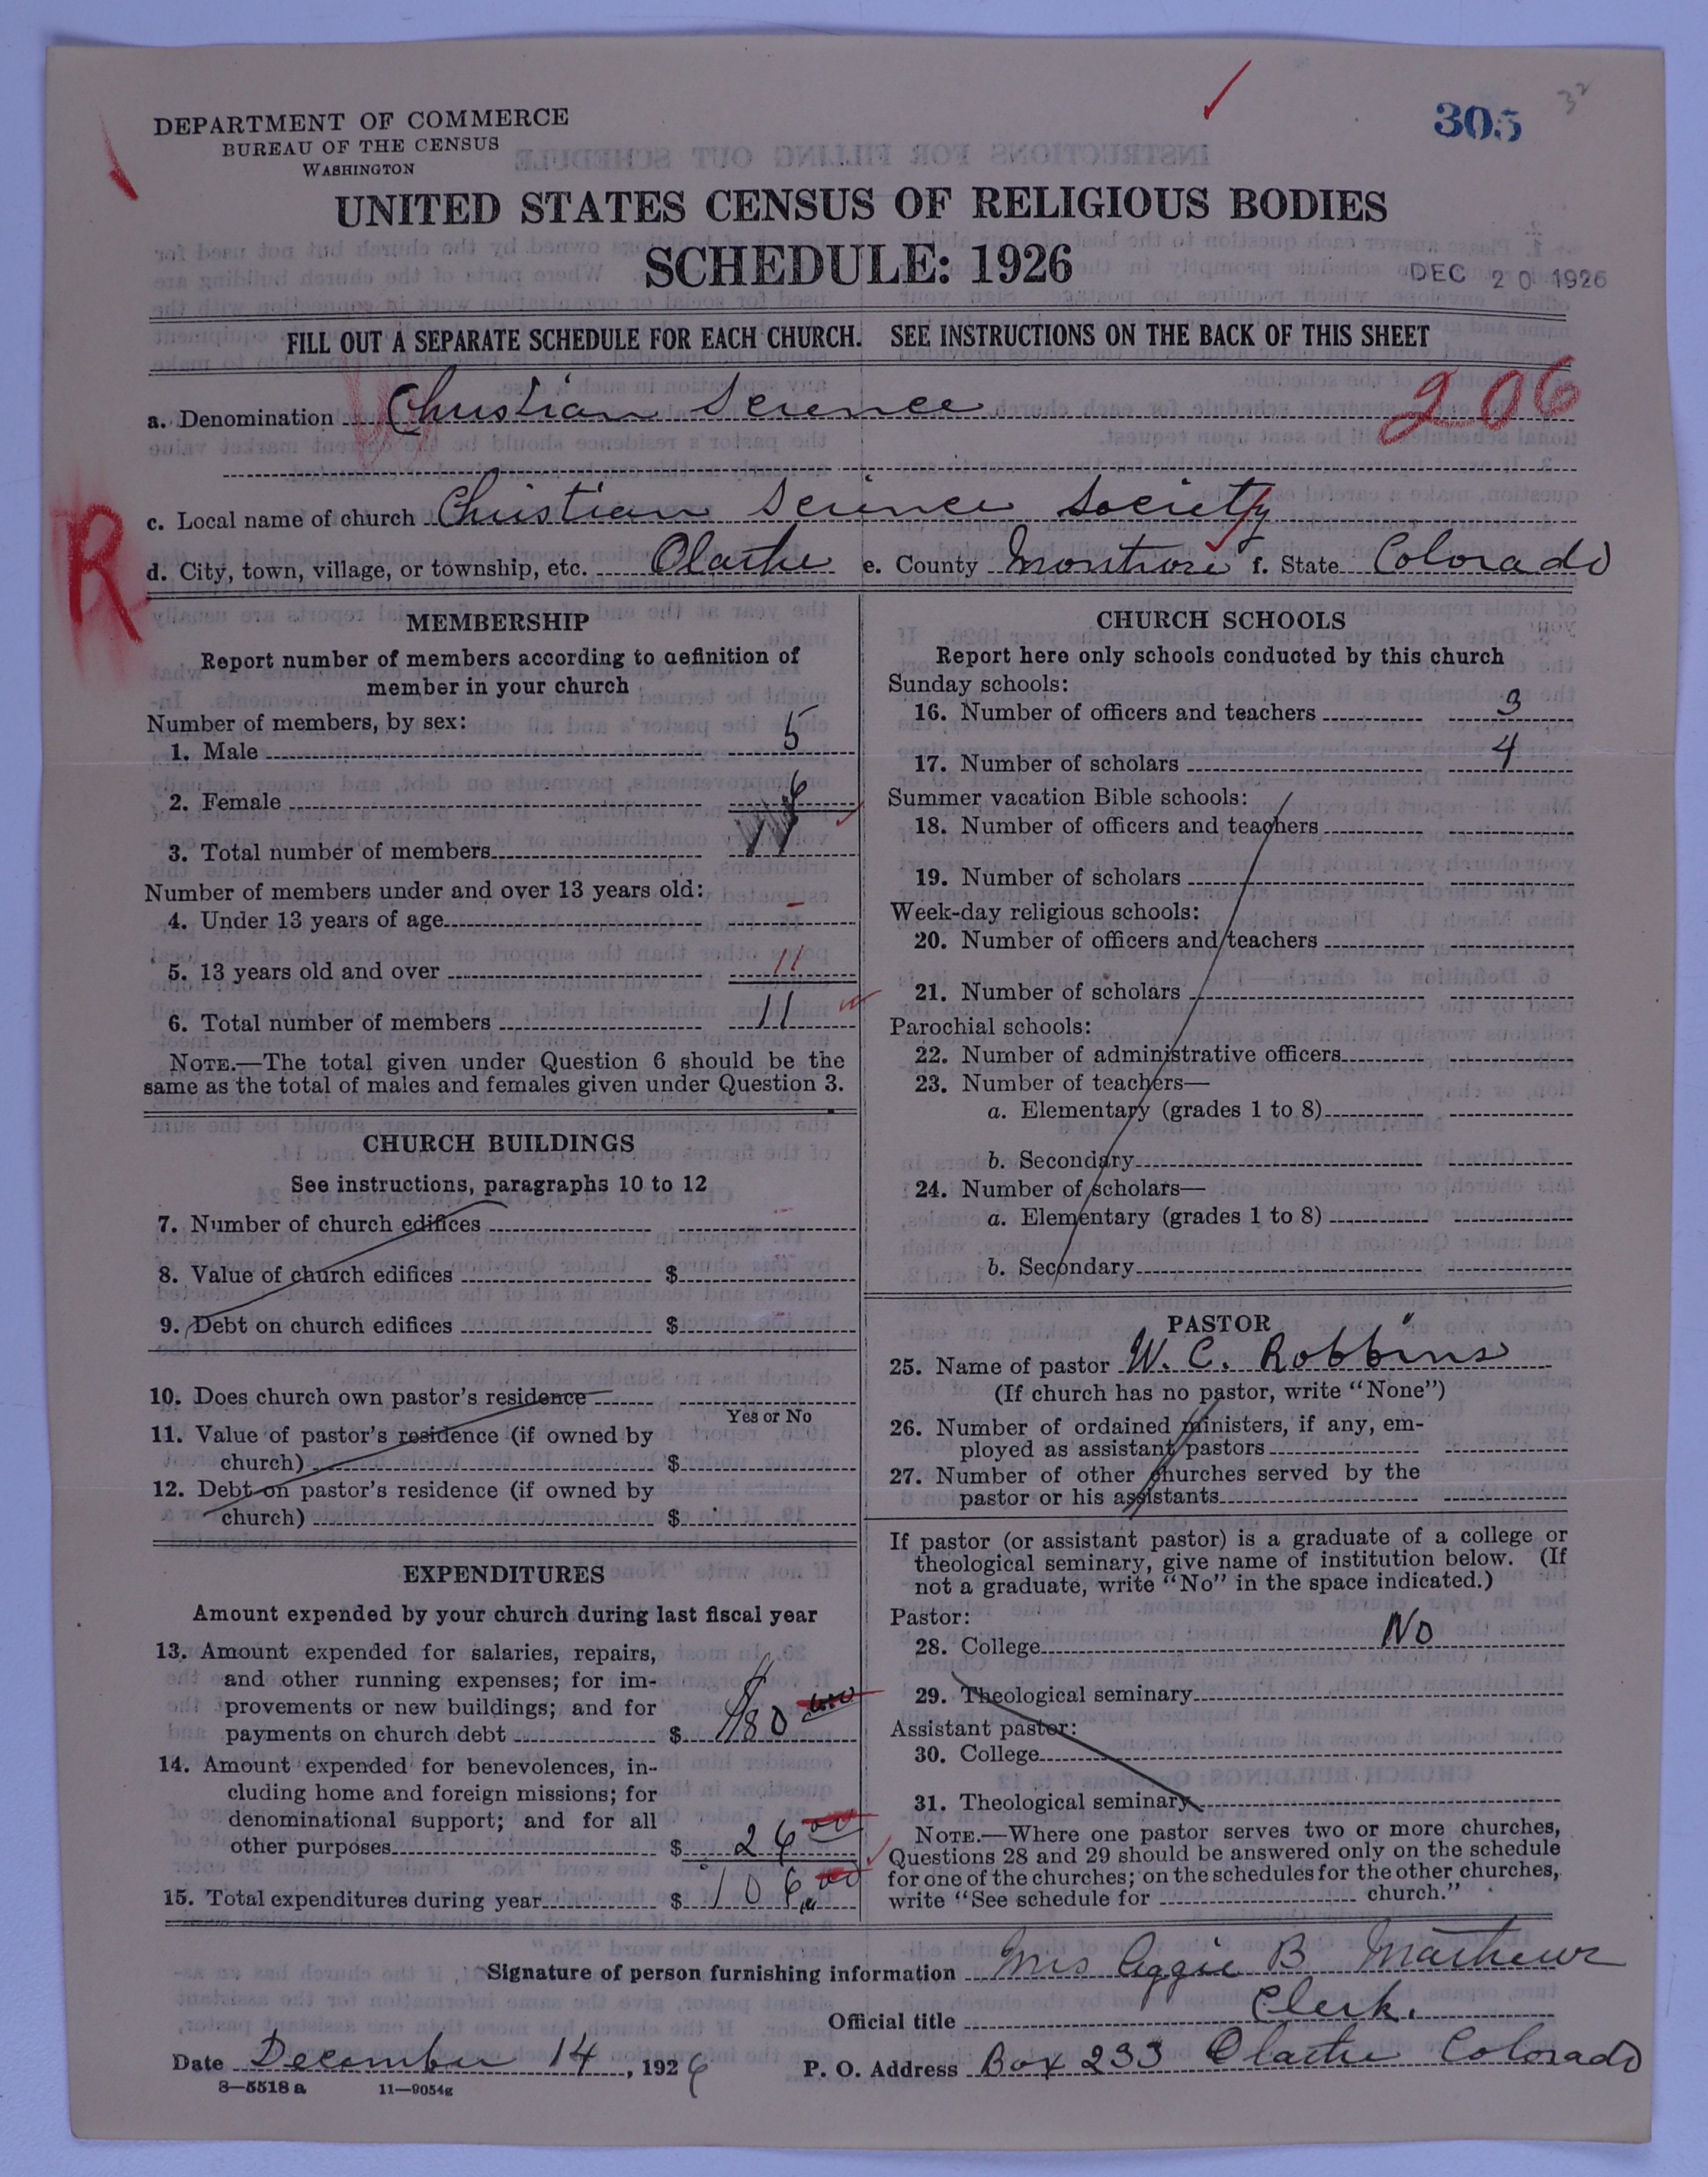 DEPARTMENT OF COMMERCE
BUREAU OF THE CENSUS
WASHINGTON
305
32
UNITED STATES CENSUS OF RELIGIOUS BODIES
SCHEDULE: 1926
DEC 20 1926
FILL OUT A SEPARATE SCHEDULE FOR EACH CHURCH. SEE INSTRUCTIONS ON THE BACK OF THIS SHEET
a. Denomination Christian Science 206
c. Local name of church Christian Science Society
R
d. City, town, village, or township, etc. Olathe e. County Montrose f. State Colorado
MEMBERSHIP
Report number of members according to definition of
member in your church
Number of members, by sex:
1. Male 5
2. Female 6
3. Total number of members 11
Number of members under and over 13 years old:
4. Under 13 years of age –
5. 13 years old and over 11
6. Total number of members 11
NOTE.—The total given under Question 6 should be the
same as the total of males and females given under Question 3.
CHURCH BUILDINGS
See instructions, paragraphs 10 to 12
7. Number of church edifices
8. Value of church edifices $
9. Debt on church edifices $
10. Does church own pastor's residence
Yes or No
11. Value of pastor's residence (if owned by
church) $
12. Debt on pastor's residence (if owned by
church) $
EXPENDITURES
Amount expended by your church during last fiscal year
13. Amount expended for salaries, repairs,
and other running expenses; for im-
provements or new buildings; and for
payments on church debt $ 80
14. Amount expended for benevolences, in-
cluding home and foreign missions; for
denominational support; and for all
other purposes $ 26 00
15. Total expenditures during year $ 106 00
CHURCH SCHOOLS
Report here only schools conducted by this church
Sunday schools:
16. Number of officers and teachers 3
17. Number of scholars 4
Summer vacation Bible schools:
18. Number of officers and teachers
19. Number of scholars
Week-day religious schools:
20. Number of officers and teachers
21. Number of scholars
Parochial schools:
22. Number of administrative officers
23. Number of teachers—
a. Elementary (grades 1 to 8)
b. Secondary
24. Number of scholars—
a. Elementary (grades 1 to 8)
b. Secondary
PASTOR
25. Name of pastor W. C. Robbins
(If church has no pastor, write "None")
26. Number of ordained ministers, if any, em-
ployed as assistant pastors
27. Number of other churches served by the
pastor or his assistants
If pastor (or assistant pastor) is a graduate of a college or
theological seminary, give name of institution below. (If
not a graduate, write "No" in the space indicated.)
Pastor:
28. College No
29. Theological seminary
Assistant pastor:
30. College
31. Theological seminary
NOTE.—Where one pastor serves two or more churches,
Questions 28 and 29 should be answered only on the schedule
for one of the churches; on the schedules for the other churches,
write "See schedule for church."
Signature of person furnishing information Mrs Aggie B Mathews
Official title Clerk.
Date December 14, 1926 P. O. Address Box 233 Olathe Colorado
8—5518 a 11—9054g